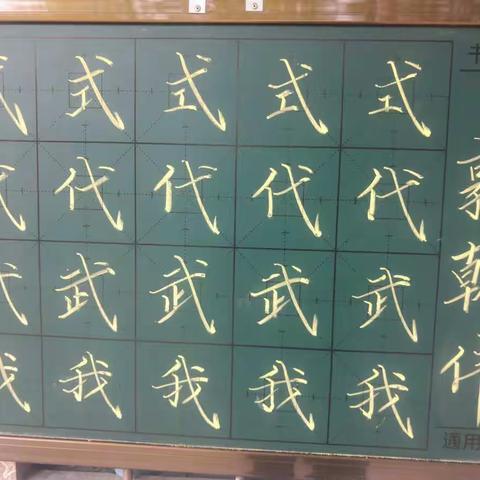 式式式式式
代代代代代
武武武武武
我我我我我
适用